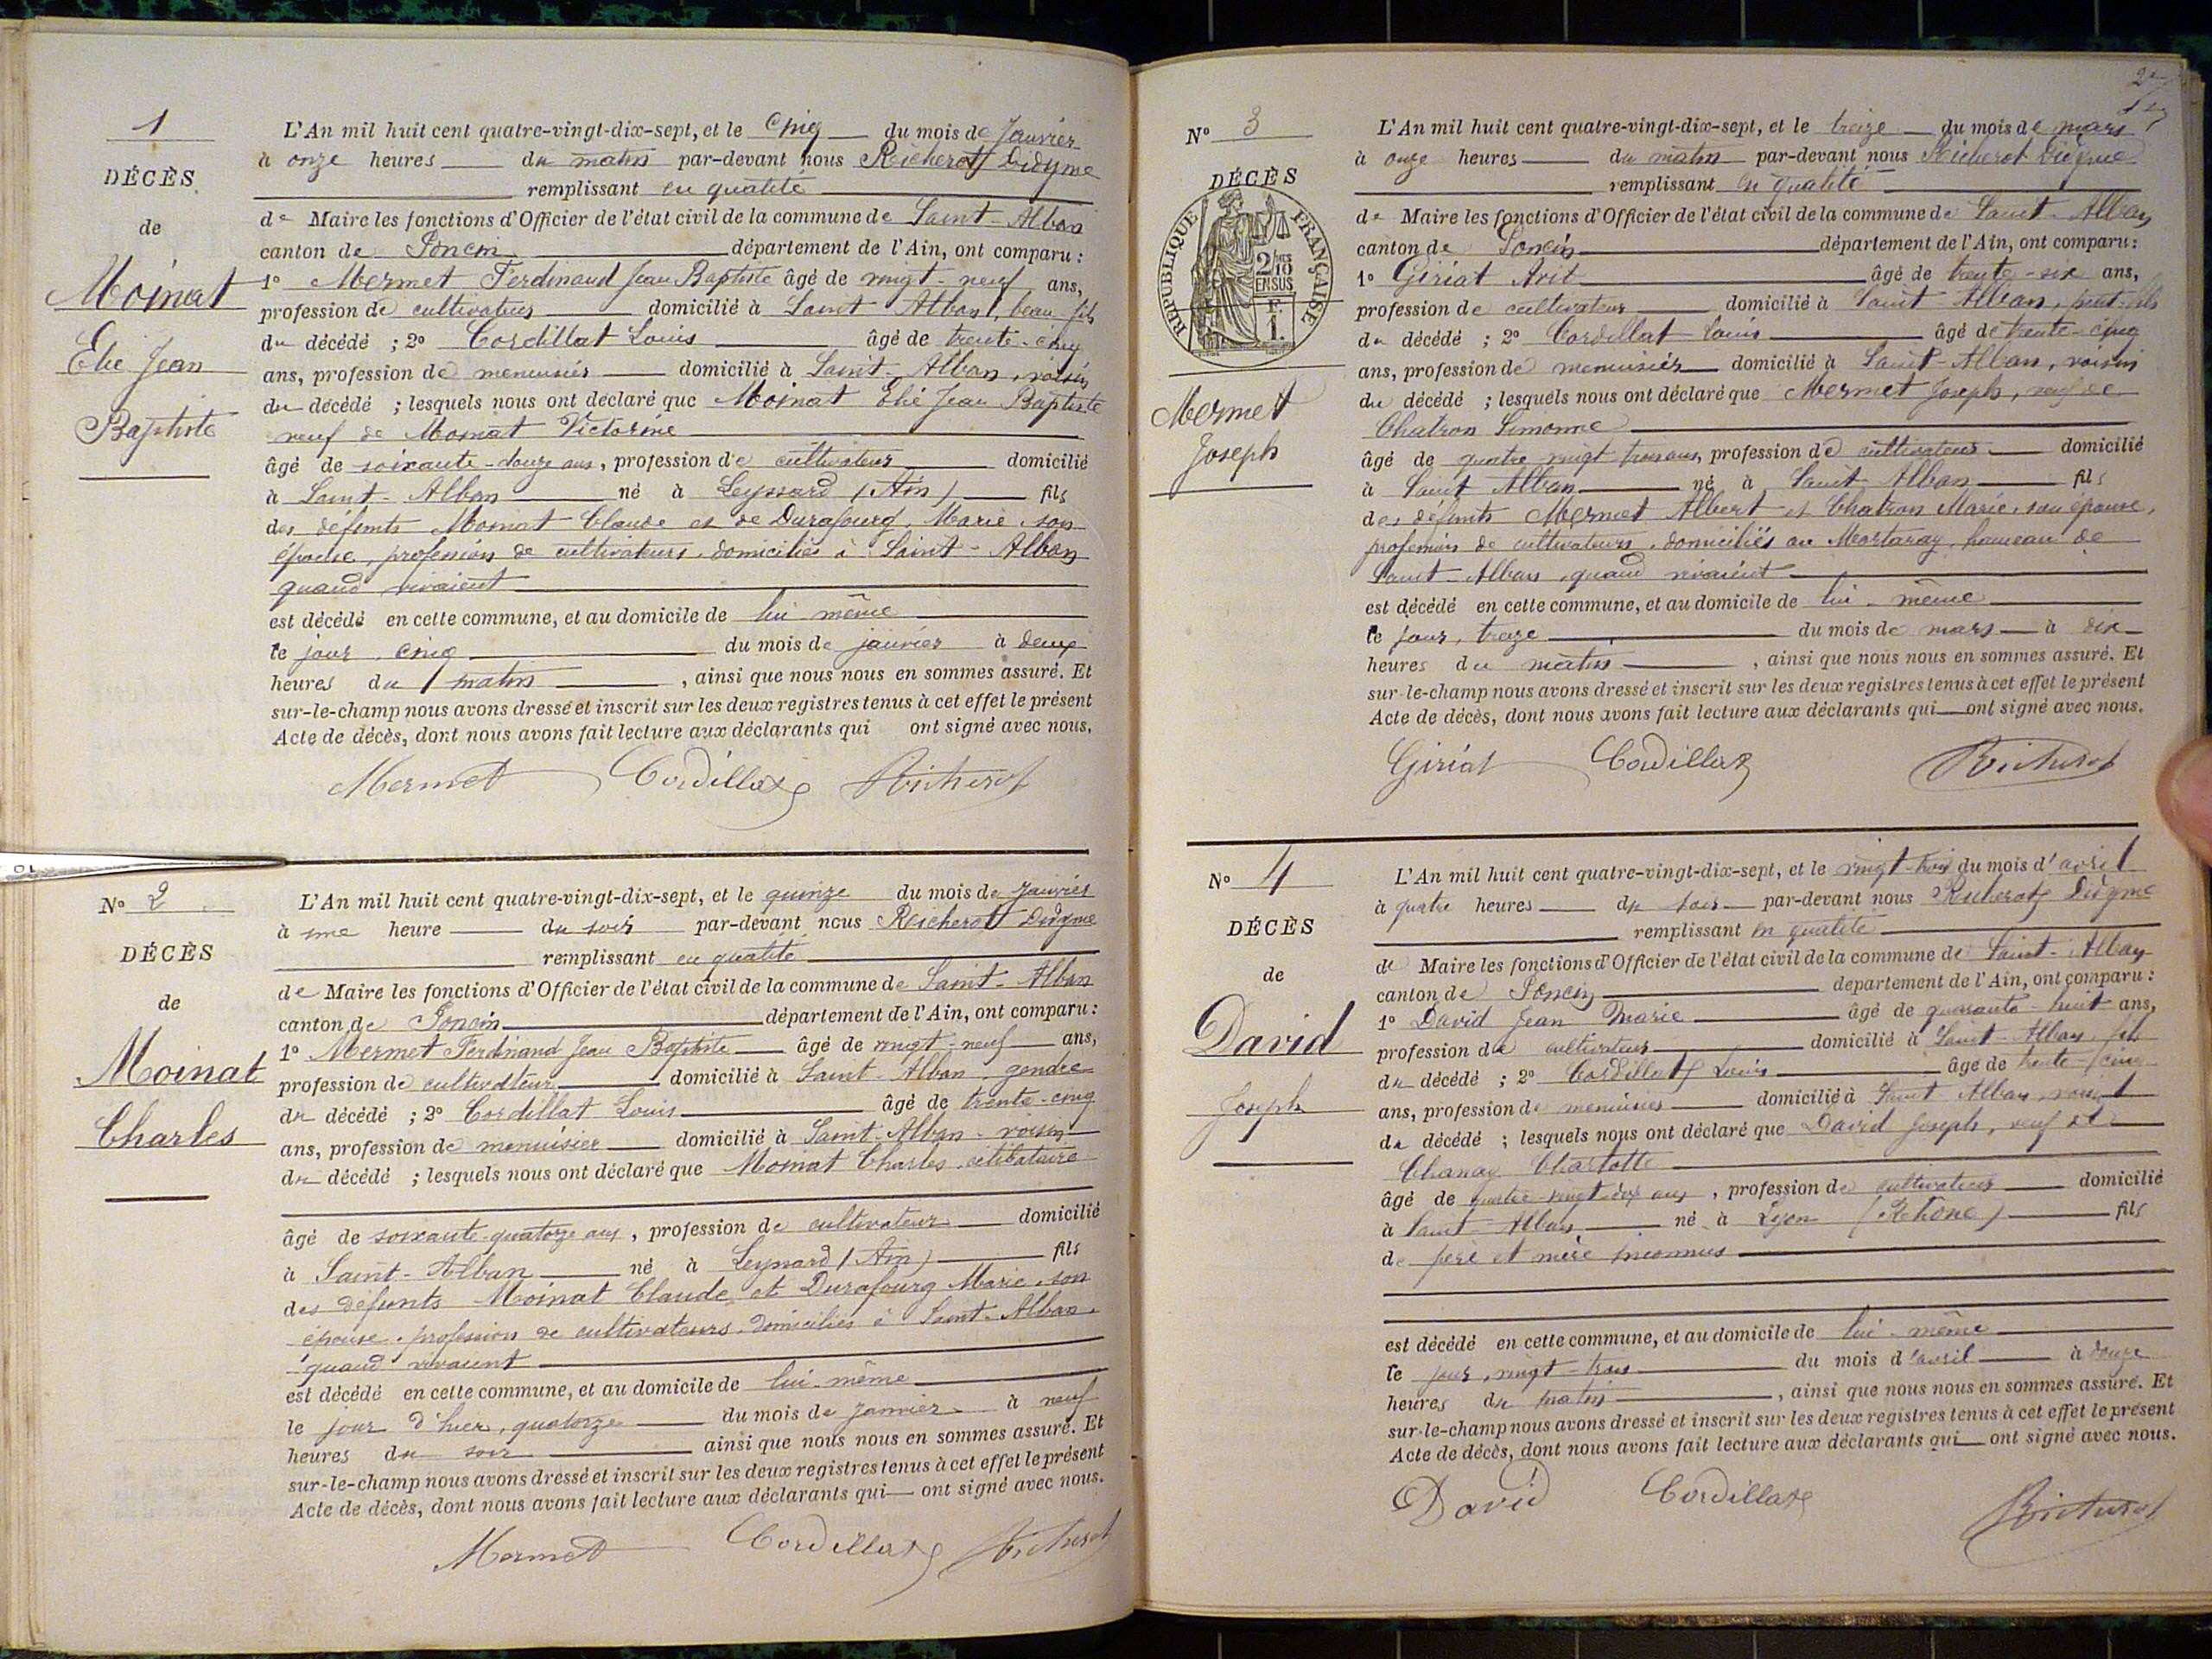 1
DÉCÈS
de
Moinat
Elie Jean
Baptiste
L'An mil huit cent quatre-vingt-dix-sept, et le Cinq du mois de Janvier
à onze heures du matin par-devant nous Richerot Didyme
remplissant en qualité
de Maire les fonctions d'Officier de l'état civil de la commune de Saint-Alban
canton de Poncin département de l'Ain, ont comparu :
1º Mermet Ferdinand Jean Baptiste âgé de vingt-neuf ans,
profession de cultivateur domicilié à Saint Alban, beau-fils
du décédé ; 2º Cordillat Louis âgé de trente-cinq
ans, profession de menuisier domicilié à Saint-Alban, voisin
du décédé ; lesquels nous ont déclaré que Moinat Elie Jean Baptiste
veuf de Moinat Victorine
âgé de soixante-douze ans, profession de cultivateur domicilié
à Saint-Alban né à Leyssard (Ain) fils
des défunts Moinat Claude et de Durafourg Marie, son
épouse, profession de cultivateurs, domiciliés à Saint-Alban
quand vivaient
est décédé en cette commune, et au domicile de lui-même
le jour, cinq du mois de janvier à deux
heures du matin, ainsi que nous nous en sommes assuré. Et
sur-le-champ nous avons dressé et inscrit sur les deux registres tenus à cet effet le présent
Acte de décès, dont nous avons fait lecture aux déclarants qui ont signé avec nous.
Mermet Cordillat Richerot
Nº 2
DÉCÈS
de
Moinat
Charles
L'An mil huit cent quatre-vingt-dix-sept, et le quinze du mois de Janvier
à une heure du soir par-devant nous Richerot Didyme
remplissant en qualité
de Maire les fonctions d'Officier de l'état civil de la commune de Saint-Alban
canton de Poncin département de l'Ain, ont comparu :
1º Mermet Ferdinand Jean Baptiste âgé de vingt-neuf ans,
profession de cultivateur domicilié à Saint-Alban, gendre
du décédé ; 2º Cordillat Louis âgé de trente-cinq
ans, profession de menuisier domicilié à Saint-Alban-voisin
du décédé ; lesquels nous ont déclaré que Moinat Charles, célibataire
âgé de soixante-quatorze ans, profession de cultivateur domicilié
à Saint-Alban né à Leyssard (Ain) fils
des défunts Moinat Claude et Durafourg Marie, son
épouse, profession de cultivateurs, domiciliés à Saint-Alban,
quand vivaient
est décédé en cette commune, et au domicile de lui-même
le jour d'hier, quatorze du mois de janvier à neuf
heures du soir ainsi que nous nous en sommes assuré. Et
sur-le-champ nous avons dressé et inscrit sur les deux registres tenus à cet effet le présent
Acte de décès, dont nous avons fait lecture aux déclarants qui ont signé avec nous.
Mermet Cordillat Richerot
Nº 3
DÉCÈS
RÉPUBLIQUE FRANÇAISE
2/10
EN SUS
F.
1.
Mermet
Joseph
L'An mil huit cent quatre-vingt-dix-sept, et le treize du mois de mars
à onze heures du matin par-devant nous Richerot Didyme
remplissant en qualité
de Maire les fonctions d'Officier de l'état civil de la commune de Saint-Alban
canton de Poncin département de l'Ain, ont comparu :
1º Giriat Avit âgé de trente-six ans,
profession de cultivateur domicilié à Saint-Alban, petit-fils
du décédé ; 2º Cordillat Louis âgé de trente-cinq
ans, profession de menuisier domicilié à Saint-Alban, voisin
du décédé ; lesquels nous ont déclaré que Mermet Joseph, veuf de
Chatron Simonne
âgé de quatre vingt trois ans, profession de cultivateur domicilié
à Saint Alban né à Saint Alban fils
des défunts Mermet Albert et Chatron Marie, son épouse,
profession de cultivateurs, domiciliés au Mortaray, hameau de
Saint-Alban, quand vivaient
est décédé en cette commune, et au domicile de lui-même
le jour, treize du mois de mars à dix
heures du matin, ainsi que nous nous en sommes assuré. Et
sur-le-champ nous avons dressé et inscrit sur les deux registres tenus à cet effet le présent
Acte de décès, dont nous avons fait lecture aux déclarants qui ont signé avec nous.
Giriat Cordillat Richerot
Nº 4
DÉCÈS
de
David
Joseph
L'An mil huit cent quatre-vingt-dix-sept, et le vingt-trois du mois d'avril
à quatre heures du soir par-devant nous Richerot Didyme
remplissant en qualité
de Maire les fonctions d'Officier de l'état civil de la commune de Saint-Alban
canton de Poncin département de l'Ain, ont comparu :
1º David Jean Marie âgé de quarante-huit ans,
profession de cultivateur domicilié à Saint-Alban, fils
du décédé ; 2º Cordillat Louis âgé de trente-cinq
ans, profession de menuisier domicilié à Saint Alban, voisin
du décédé ; lesquels nous ont déclaré que David Joseph, veuf de
Chanay Charlotte
âgé de quatre-vingt-dix ans, profession de cultivateur domicilié
à Saint-Alban né à Lyon (Rhône) fils
de père et mère inconnus
est décédé en cette commune, et au domicile de lui-même
le jour, vingt-trois du mois d'avril à douze
heures du matin, ainsi que nous nous en sommes assuré. Et
sur-le-champ nous avons dressé et inscrit sur les deux registres tenus à cet effet le présent
Acte de décès, dont nous avons fait lecture aux déclarants qui ont signé avec nous.
David Cordillat Richerot